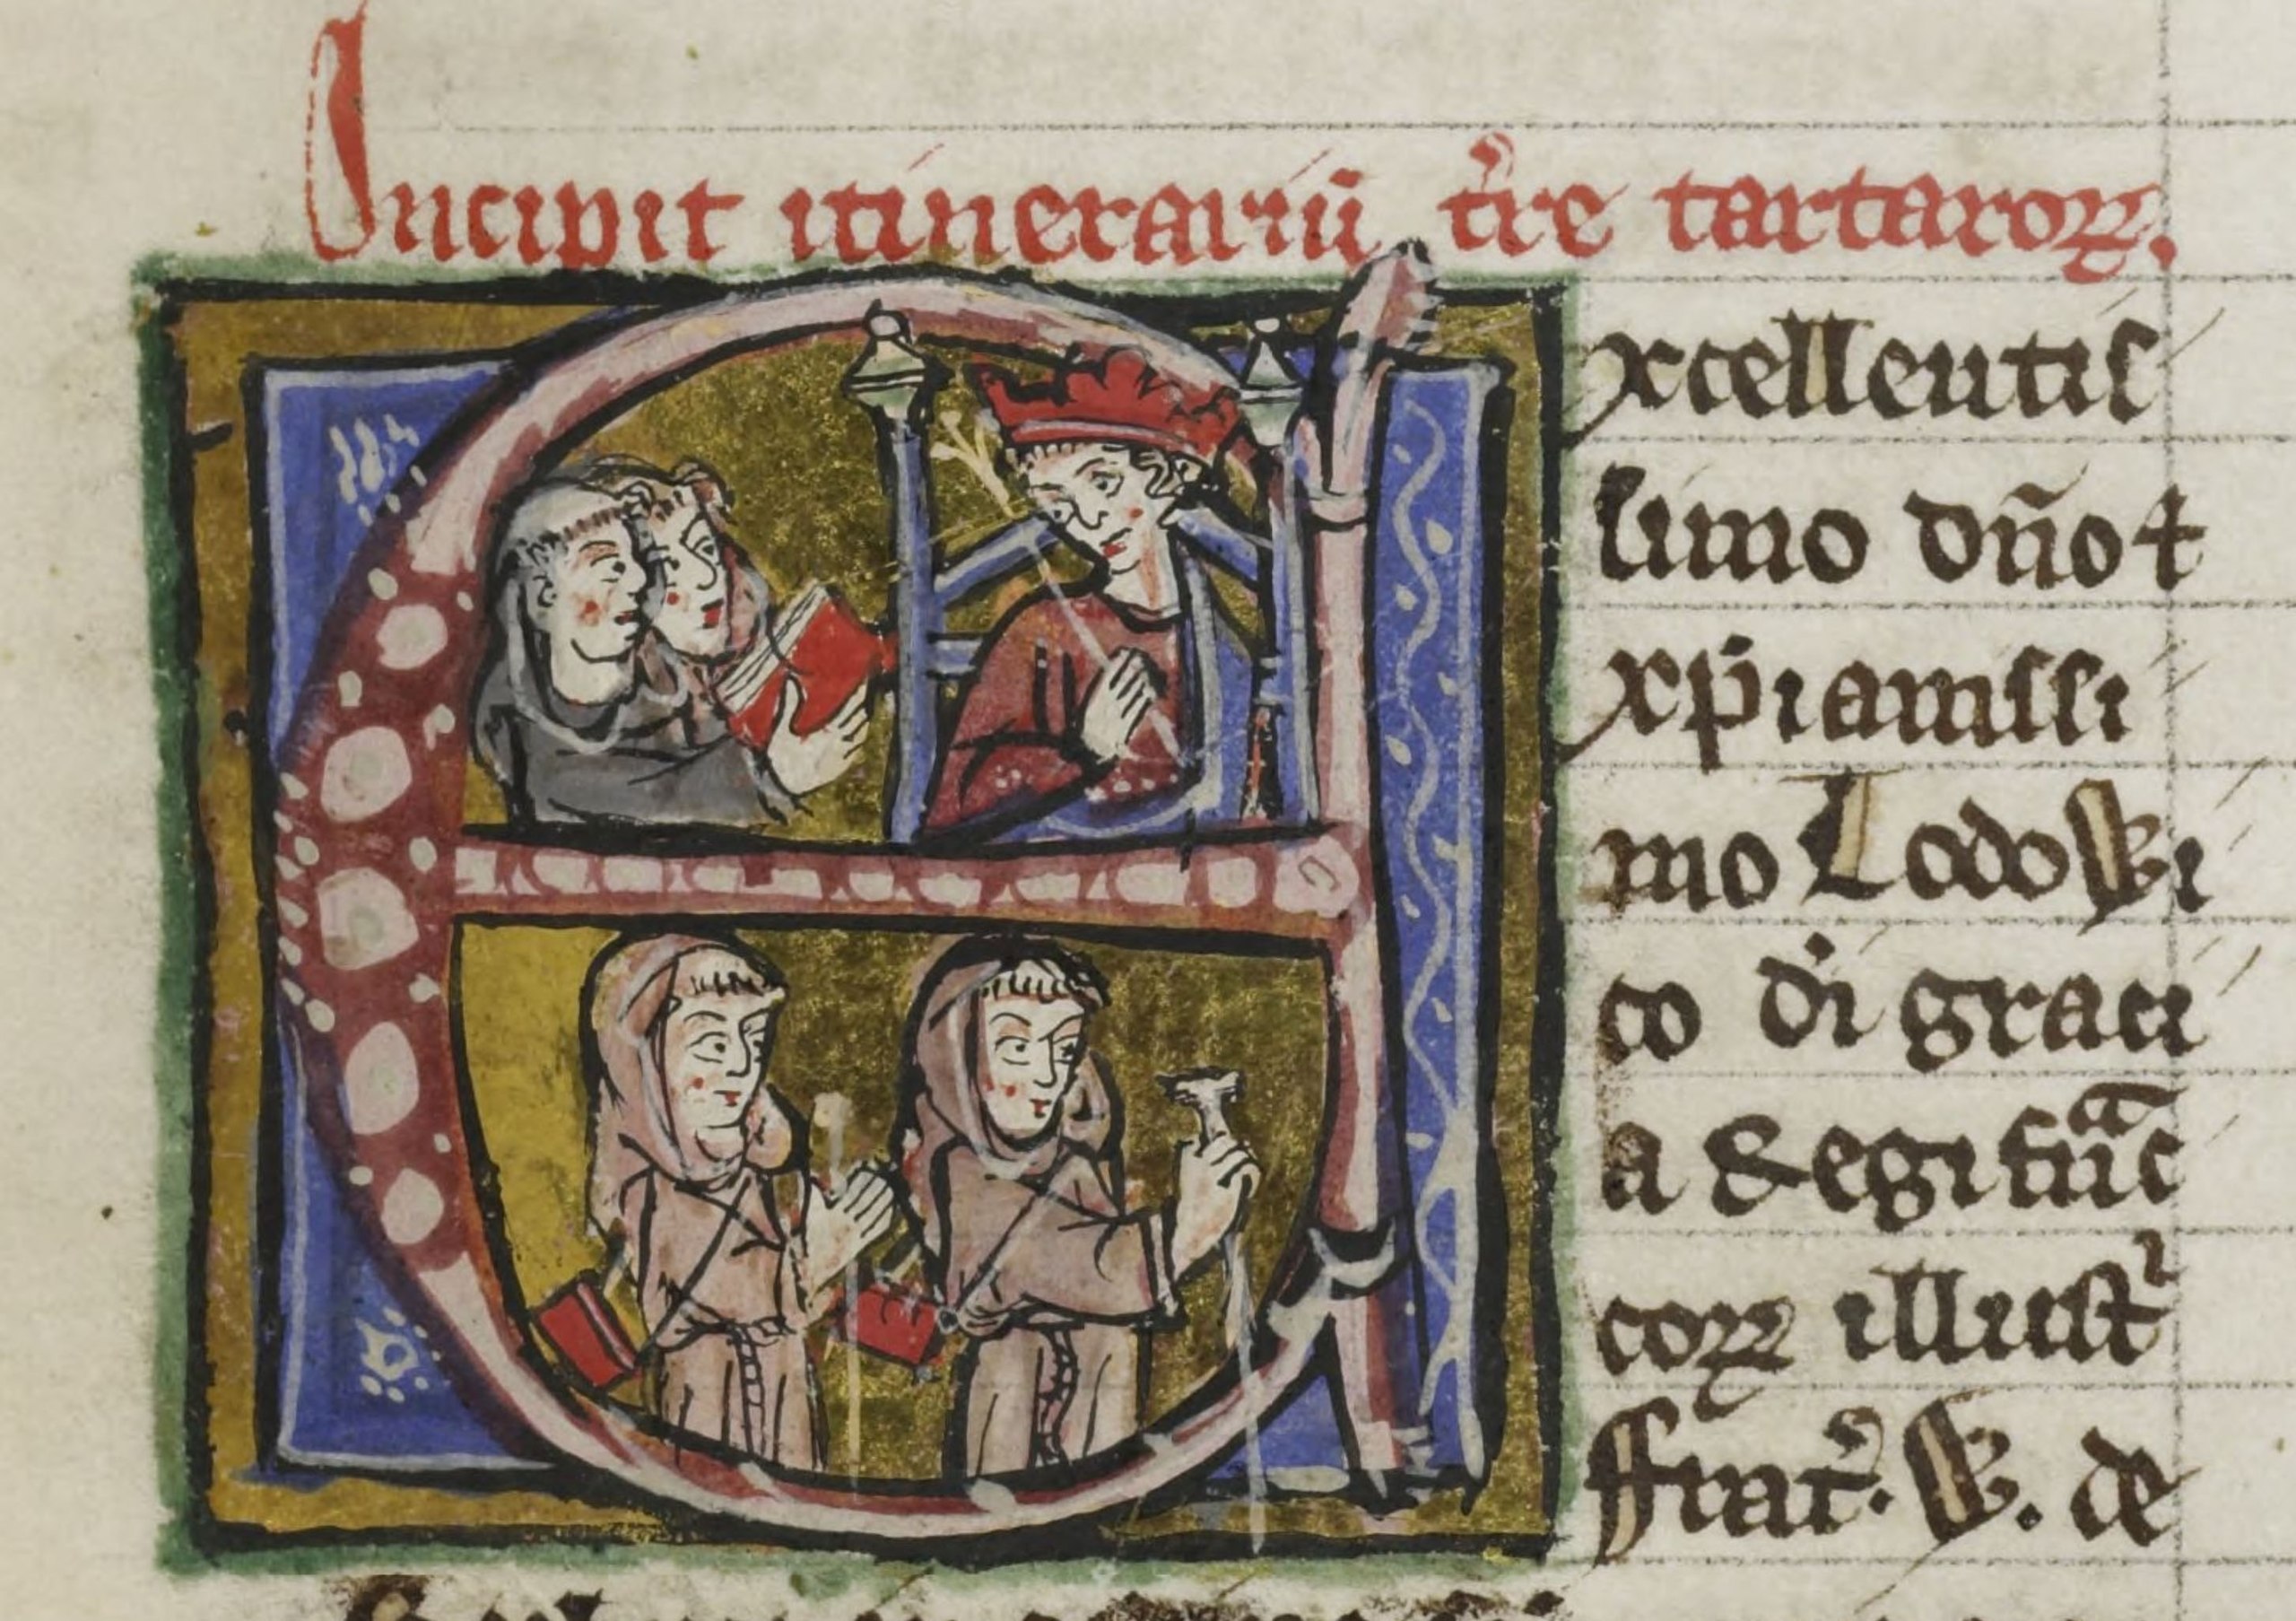 Incipit itinerariū t̉re tartaroꝝ.
Excellentis
simo dn̄o ⁊
xp̄ianissi
mo Lodowi
co di graci
a Regi franc
coꝝ illustr
ffrat̉. W. de